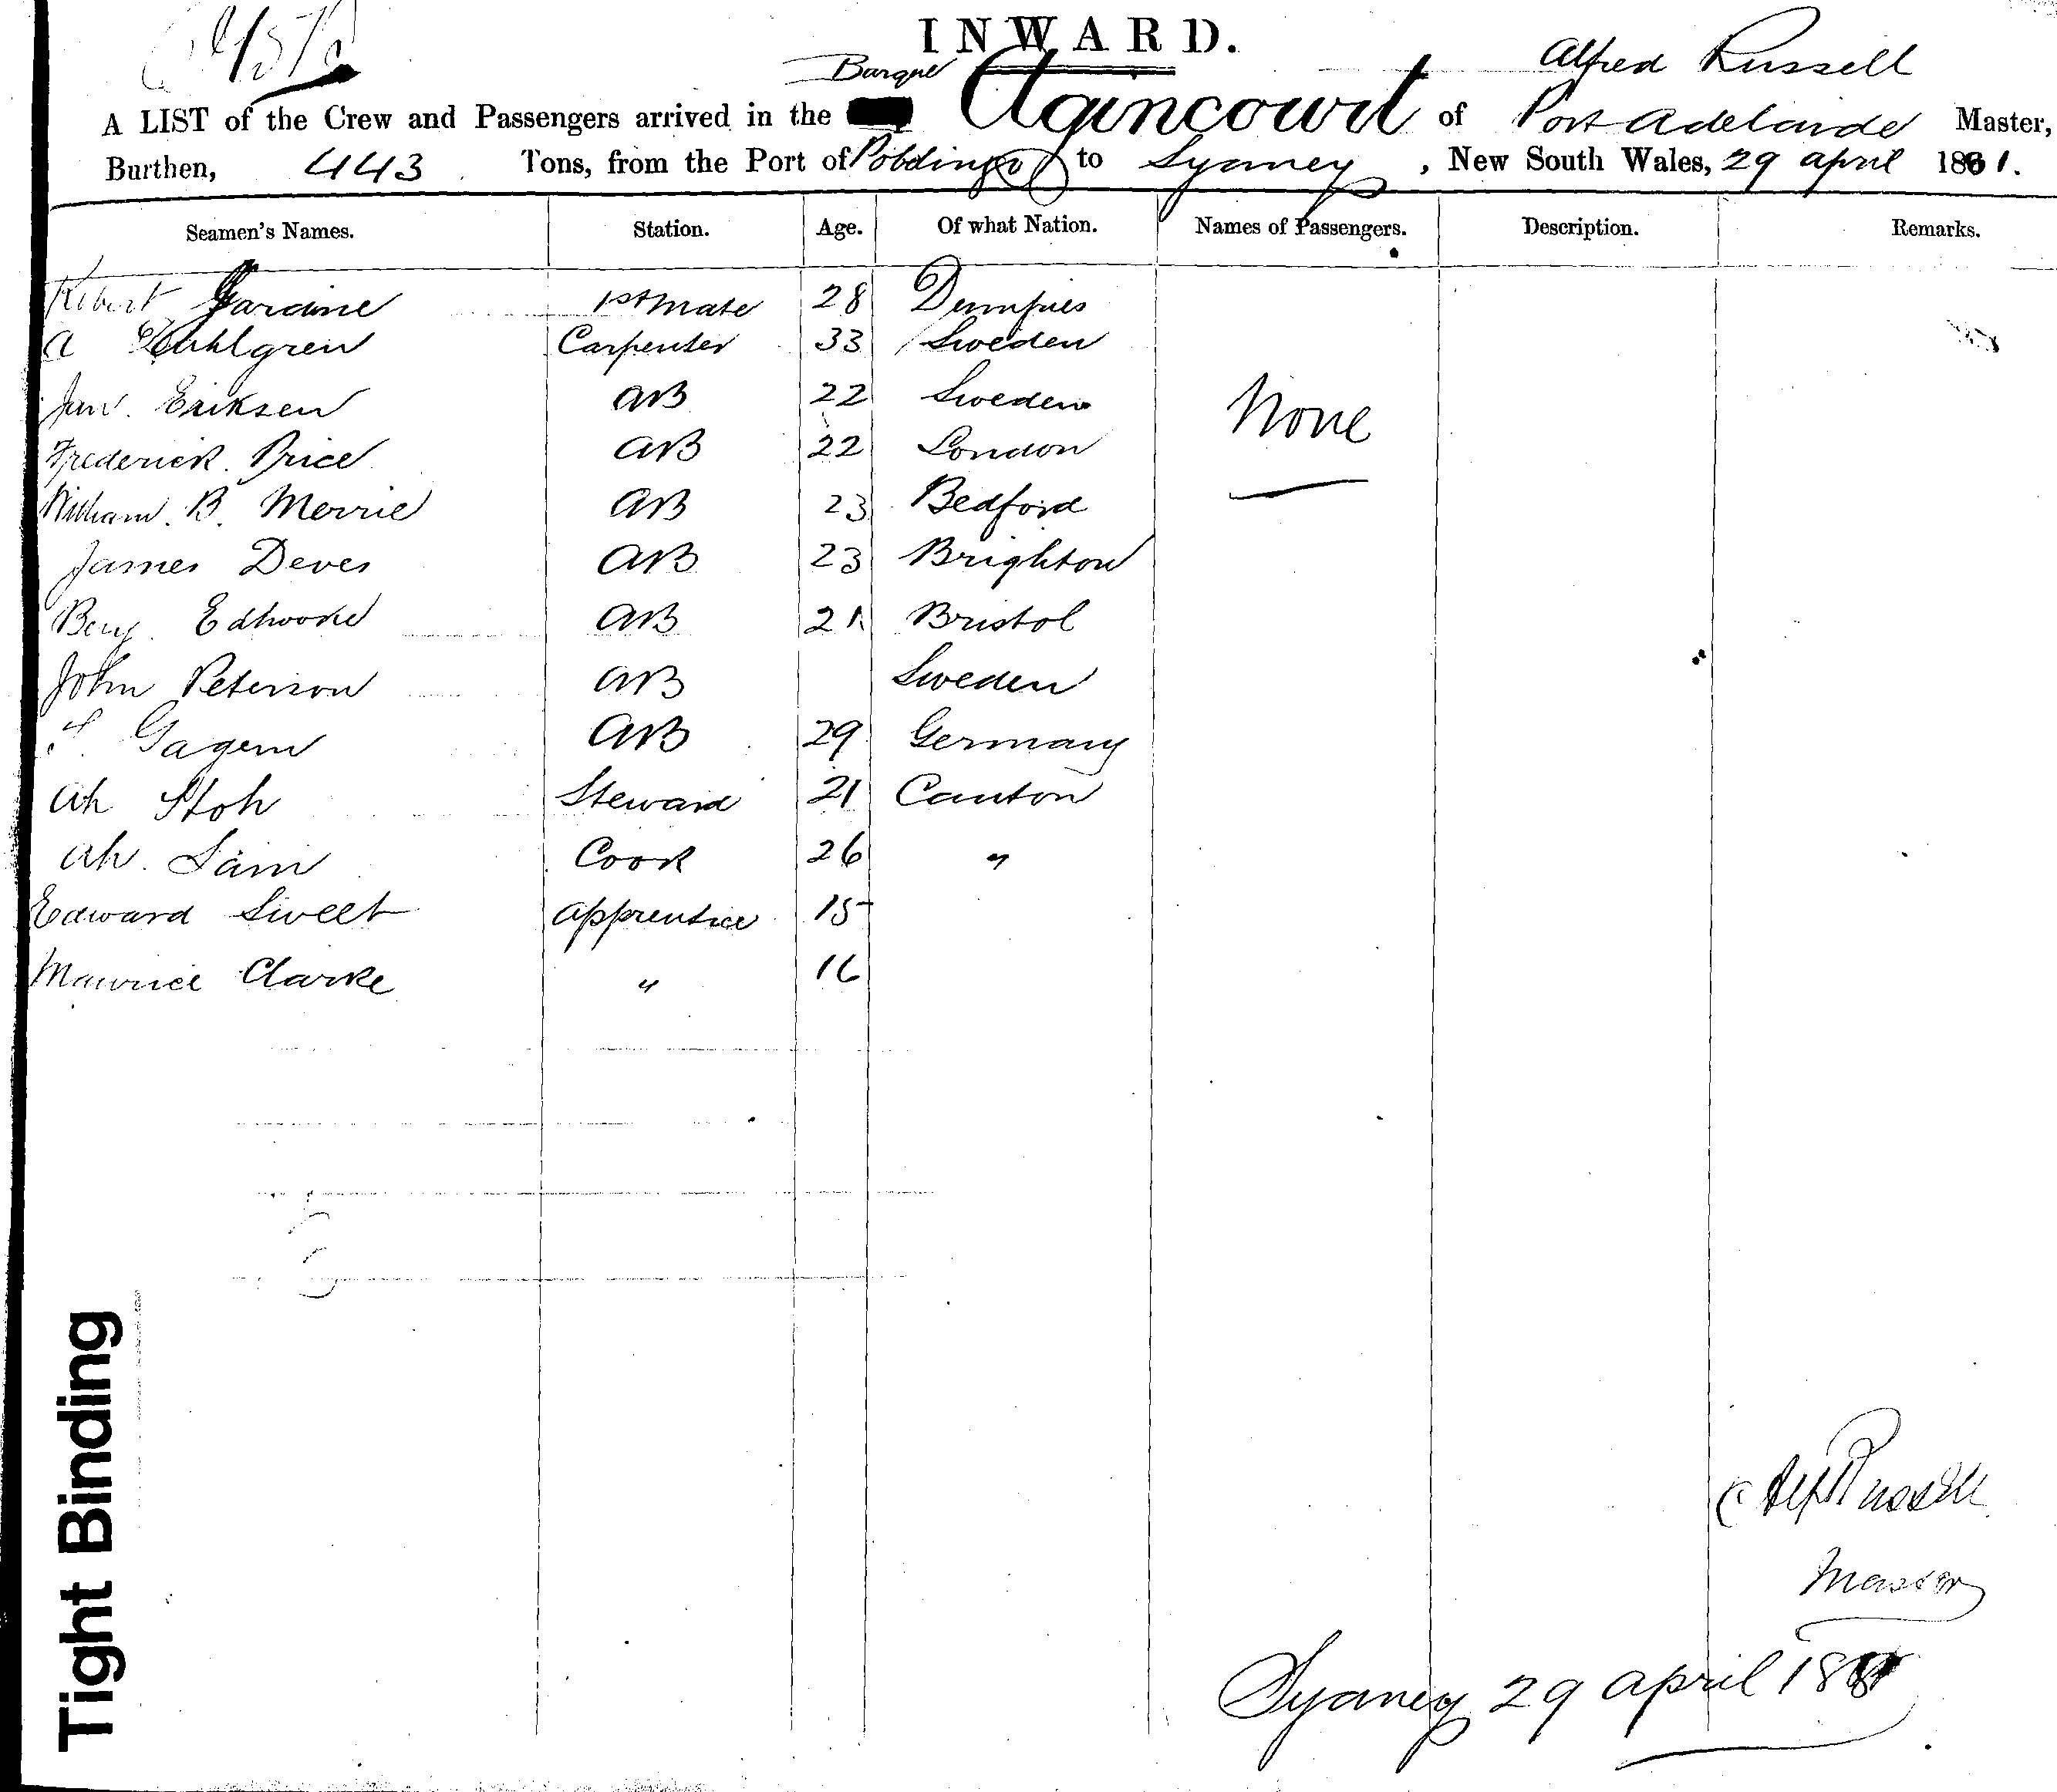 INWARD.
Barque Alfred Russell
A LIST of the Crew and Passengers arrived in the Agincourt of Port Adelaide Master,
Burthen, 443 Tons, from the Port of to Sydney, New South Wales, 29 april 1881.
Seamen's Names. Station. Age. Of what Nation. Names of Passengers. Description. Remarks.
Robert Jardine 1st Mate 28 Dumfries
A Carpenter 33 Sweden
Jan. Eriksen AB 22 Sweden None
Frederick Price AB 22 London
William. B. Merrie AB 23 Bedford
James Deves AB 23 Brighton
Benj. AB 21 Bristol
John Peterson AB Sweden
Gagern AB 29 Germany
Ah Stoh Steward 21 Canton
Ah. Sam Cook 26 "
Edward Sweet apprentice 15
Maurice Clarke " 16
Alf Russell
Master
Sydney 29 april 1881
Tight Binding